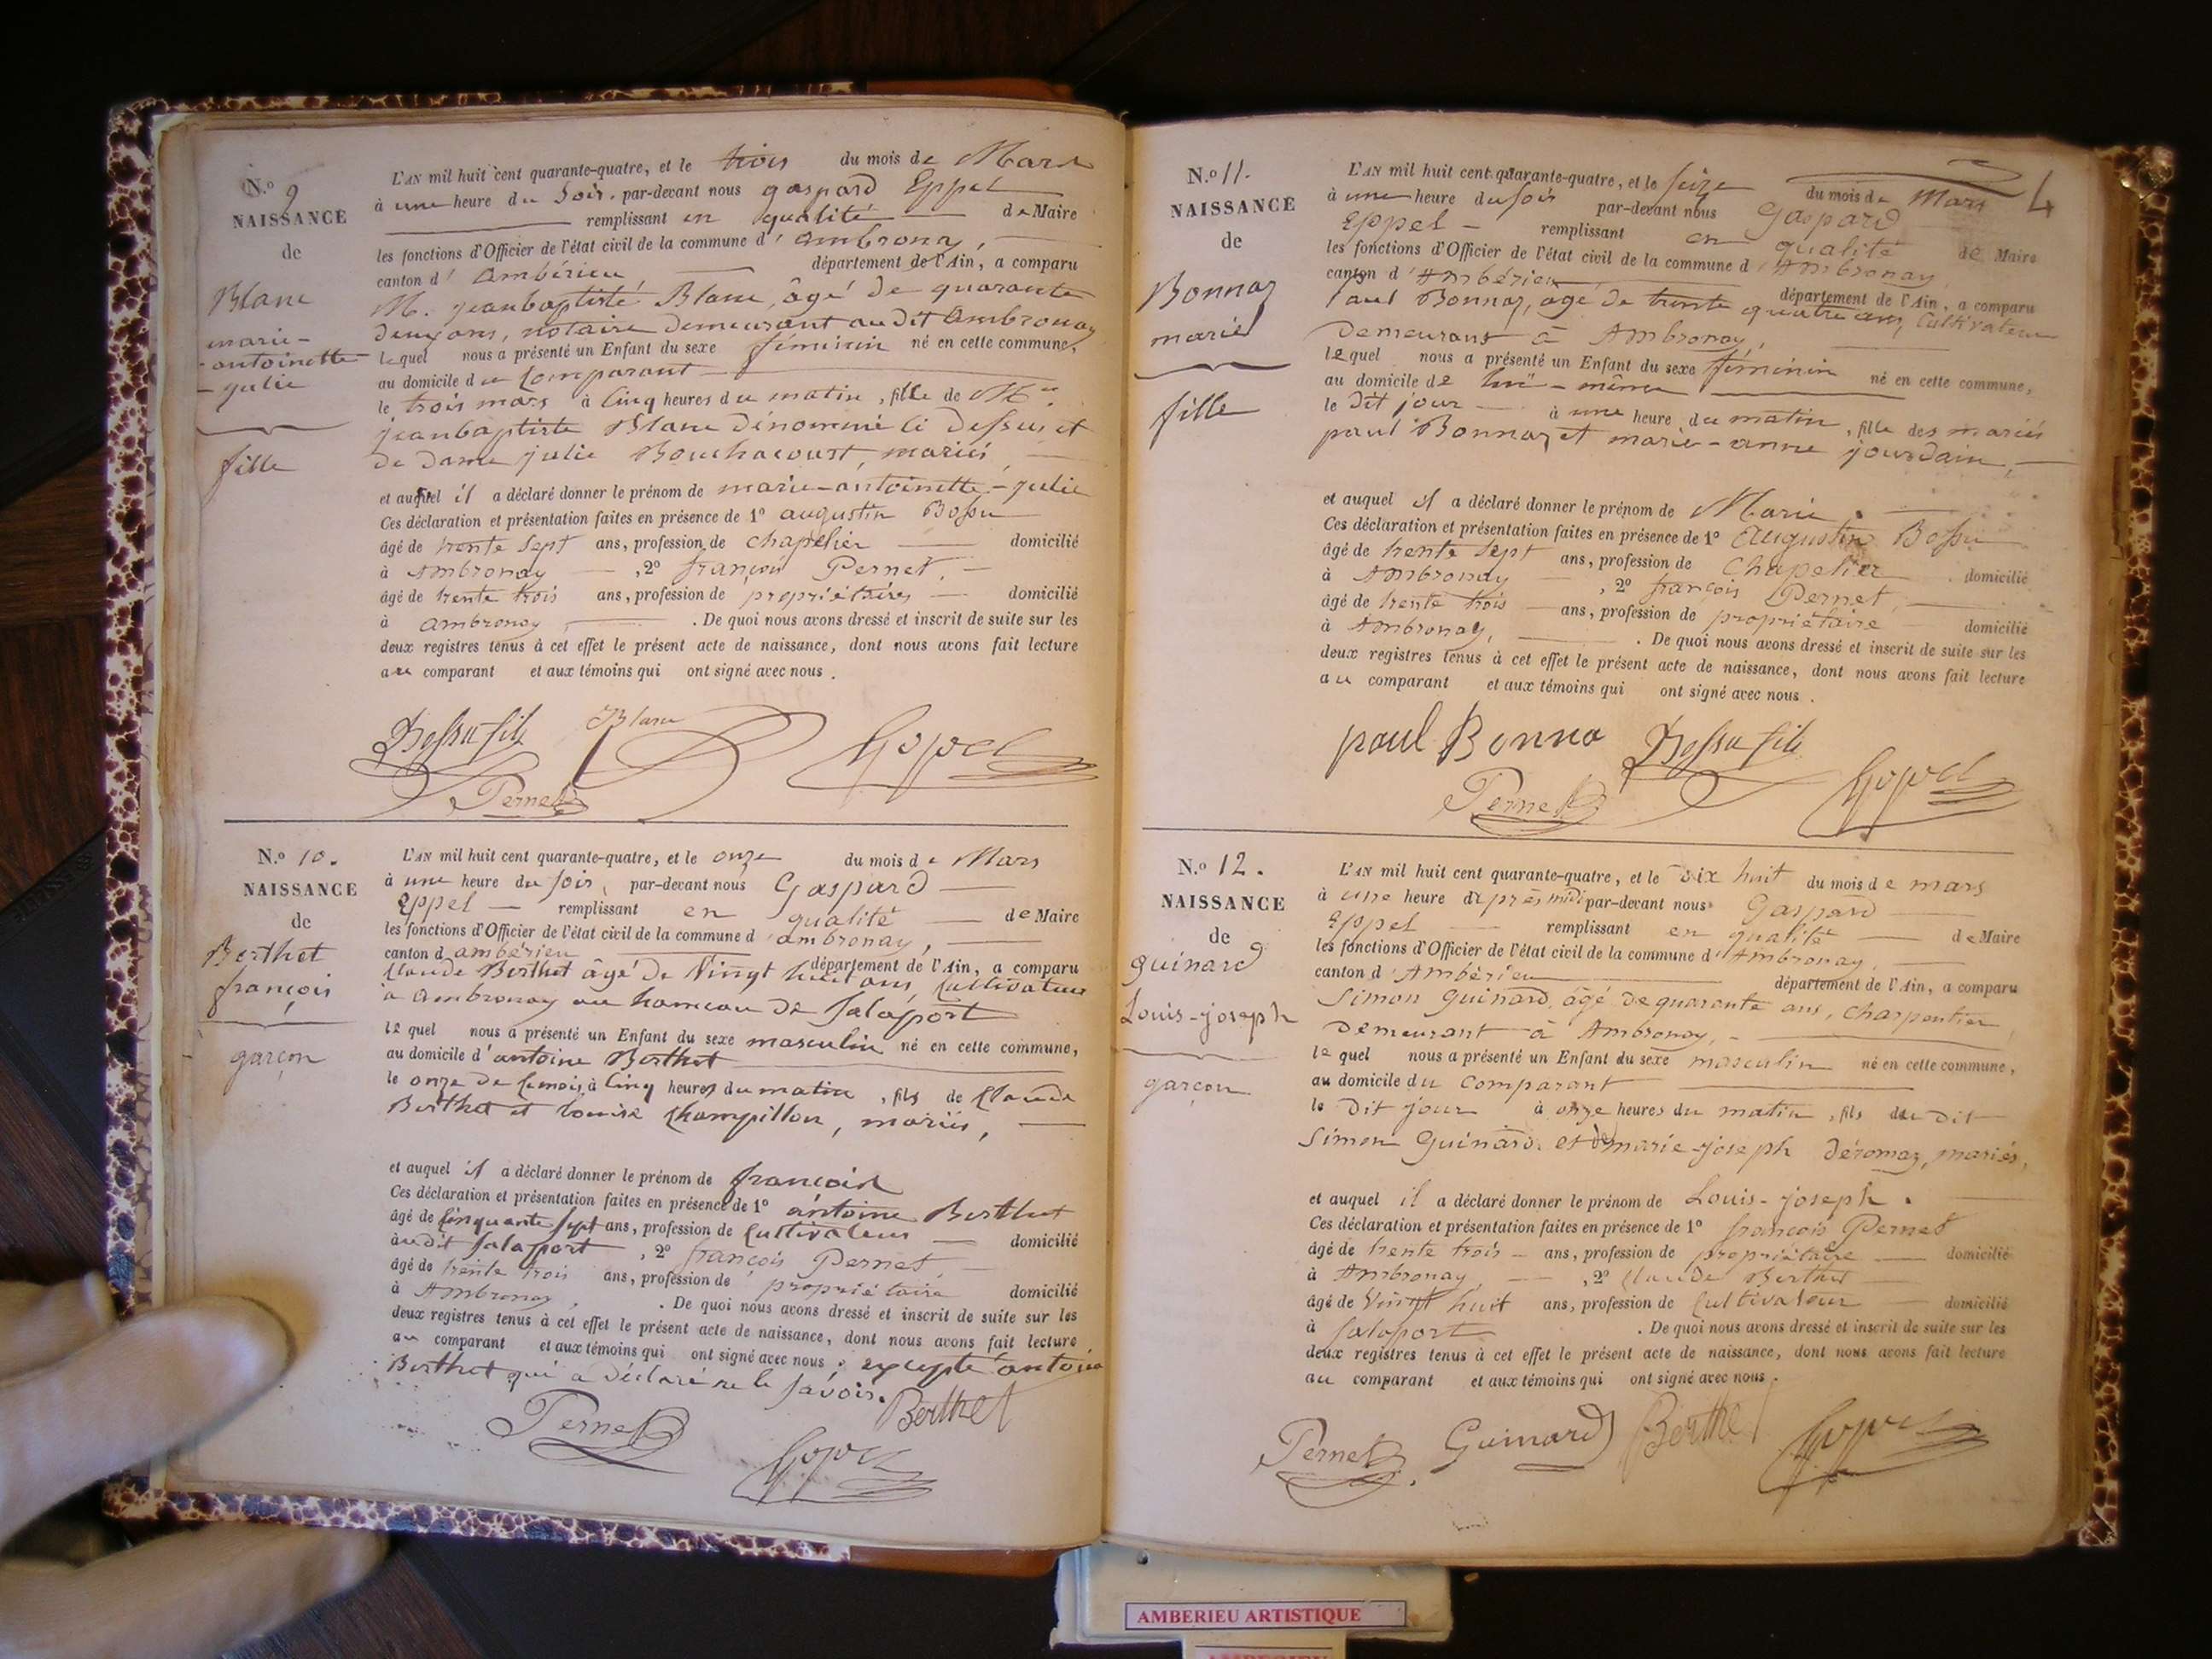 N.o 9
NAISSANCE
de
Blanc
marie-
antoinette
- julie
fille
L'AN mil huit cent quarante-quatre, et le trois du mois de Mars
à une heure du Soir. par-devant nous gaspard Eppel
remplissant en qualité de Maire
les fonctions d'Officier de l'état civil de la commune d'ambronay,
canton d'ambérieu département de l'Ain, a comparu
M. jeanbaptiste Blanc, âgé de quarante
deux ans, notaire demeurant audit Ambronay
lequel nous a présenté un Enfant du sexe féminin né en cette commune,
au domicile du Comparant
le trois mars à Cinq heures du matin, fille de Mr
jeanbaptiste Blanc dénommé ci dessus et
de dame julie Bouchacourt, mariés
et auquel il a déclaré donner le prénom de marie-antoinette-julie
Ces déclaration et présentation faites en présence de 1º augustin Bossu
âgé de trente sept ans, profession de chapelier domicilié
à Ambronay, 2º françois Pernet,
âgé de trente trois ans, profession de propriétaires domicilié
à ambronay. De quoi nous avons dressé et inscrit de suite sur les
deux registres tenus à cet effet le présent acte de naissance, dont nous avons fait lecture
au comparant et aux témoins qui ont signé avec nous.
Bossu fils Blanc Eppel
Pernet
N.o 10.
NAISSANCE
de
Berthet
françois
garçon
L'AN mil huit cent quarante-quatre, et le onze du mois de Mars
à une heure du soir, par-devant nous Gaspard
Eppel remplissant en qualité de Maire
les fonctions d'Officier de l'état civil de la commune d'ambronay,
canton d ambérieu département de l'Ain, a comparu
Claude Berthet âgé de Vingt huit ans, Cultivateur
à ambronay au hameau de Salaport
lequel nous a présenté un Enfant du sexe masculin né en cette commune,
au domicile d'antoine Berthet
le onze de Cemois, à Cinq heures du matin, fils de Claude
Berthet et louise Champillon, mariés,
et auquel il a déclaré donner le prénom de françois
Ces déclaration et présentation faites en présence de 1º antoine Berthet
âgé de Cinquante sept ans, profession de Cultivateur domicilié
audit Salaport, 2º françois Pernet,
âgé de trente trois ans, profession de propriétaire domicilié
à Ambronay, . De quoi nous avons dressé et inscrit de suite sur les
deux registres tenus à cet effet le présent acte de naissance, dont nous avons fait lecture
au comparant et aux témoins qui ont signé avec nous. excepté antoine
Berthet qui a déclaré ne le savoir. Berthet
Pernet Eppel
4
N.o 11.
NAISSANCE
de
Bonnaz
marie
fille
L'AN mil huit cent quarante-quatre, et le seize du mois de Mars
à une heure du soir par-devant nous Gaspard
Eppel - remplissant en qualité de Maire
les fonctions d'Officier de l'état civil de la commune d'Ambronay
canton d'Ambérieu département de l'Ain, a comparu
Paul Bonnaz, âgé de trente quatre ans, Cultivateur
demeurant à Ambronay,
lequel nous a présenté un Enfant du sexe féminin né en cette commune,
au domicile de lui-même
le dit jour à une heure du matin, fille des mariés
paul Bonnaz et marie-anne jourdain,
et auquel il a déclaré donner le prénom de Marie.
Ces déclaration et présentation faites en présence de 1º Augustin Bossu
âgé de trente sept ans, profession de Chapelier domicilié
à Ambronay, 2º françois Pernet,
âgé de trente trois ans, profession de propriétaire domicilié
à Ambronay, . De quoi nous avons dressé et inscrit de suite sur les
deux registres tenus à cet effet le présent acte de naissance, dont nous avons fait lecture
au comparant et aux témoins qui ont signé avec nous.
paul Bonna Bossu fils
Pernet Eppel
N.o 12.
NAISSANCE
de
guinard
Louis-joseph
garçon
L'AN mil huit cent quarante-quatre, et le dix huit du mois de mars
à une heure après midi par-devant nous Gaspard
Eppel remplissant en qualité de Maire
les fonctions d'Officier de l'état civil de la commune d'Ambronay,
canton d'Ambérieu département de l'Ain, a comparu
Simon Guinard, âgé de quarante ans, charpentier
demeurant à Ambronay,
lequel nous a présenté un Enfant du sexe masculin né en cette commune,
au domicile du comparant
le dit jour à onze heures du matin, fils du dit
Simon Guinard. et de marie-joseph déromaz, mariés,
et auquel il a déclaré donner le prénom de Louis-joseph.
Ces déclaration et présentation faites en présence de 1º françois Pernet
âgé de trente trois ans, profession de propriétaire domicilié
à Ambronay, 2º Claude Berthet
âgé de Vingt huit ans, profession de Cultivateur domicilié
à Salaport . De quoi nous avons dressé et inscrit de suite sur les
deux registres tenus à cet effet le présent acte de naissance, dont nous avons fait lecture
au comparant et aux témoins qui ont signé avec nous.
Pernet. Guinard Berthet Eppel
AMBERIEU ARTISTIQUE